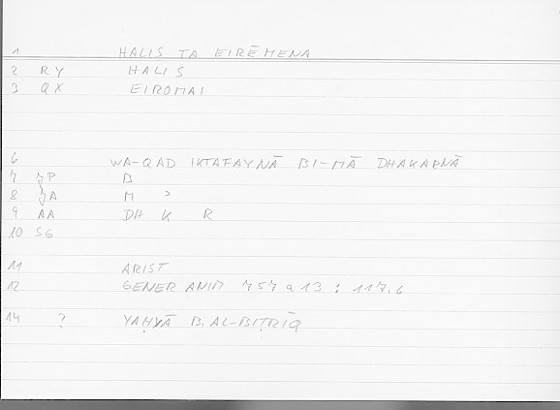 1 HALIS TA EIRĒMENA
2 RY HALIS
3 QX EIROMAI
6 WA-QAD IKTAFAYNĀ BI-MĀ DHAKARNĀ
7 JP B
8 JA M ʾ
9 AA DH K R
10 SG
11 ARIST
12 GENER ANIM 757 a 13 : 117.6
14 ? YAḤYĀ B. AL-BIṬRĪQ